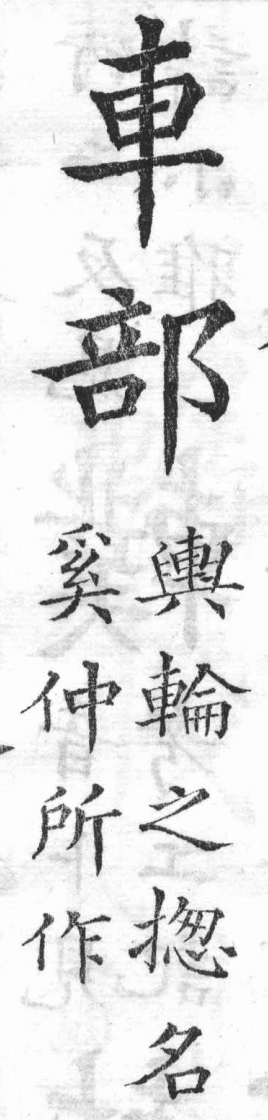 車部
輿輪之揔名
奚仲所作